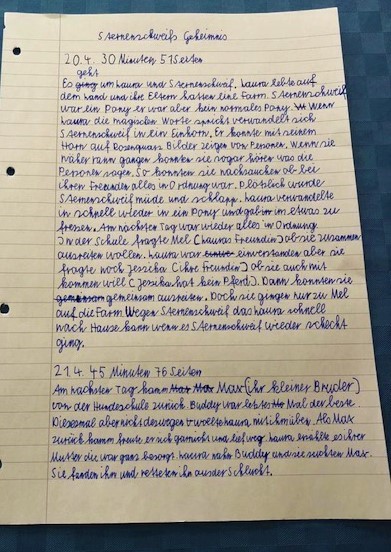 Sternenschweifs Geheimnis
20.4. 30 Minuten 51 Seiten
geht
Es ging um Laura und Sternenschweif. Laura lebte auf
dem Land und ihr Eltern hatten eine Farm. Sternenschweif
war ein Pony er war aber kein normales Pony. Wenn
Laura die magischen Worte spricht verwandelt sich
Sternenschweif in ein Einhorn. Er konnte mit seinem
Horn auf Rosenquarz Bilder zeigen von Personen. Wenn sie
näher ran gangen konnten sie sogar hören was die
Personen sagen. So konnten sie nachschauen ob bei
ihren Freunden alles in Ordnung war. Plötzlich wurde
Sternenschweif müde und schlapp. Laura verwandelte
in schnell wieder in ein Pony und gab im etwas zu
fressen. Am nächsten Tag war wieder alles in Ordnung
In der Schule fragte Mel (Lauras Freundin) ob sie zusammen
ausreiten wollen. Laura war einverstanden aber sie
fragte noch Jessika (ihre Freundin) ob sie auch mit
kommen will (Jessika hat kein Pferd). Dann konnten sie
gemeinsam gemeinsam ausreiten. Doch sie gingen nur zu Mel
auf die Farm Wegen Sternenschweif das Laura schnell
nach Hause kann wenn es Sternenschweif wieder schecht
ging.
21.4. 45 Minuten 76 Seiten
Am nächsten Tag kamm Max (ihr kleiner Bruder)
von der Hundeschule zurück Buddy war letztes Mal der beste.
Diesesmal aber nicht deswegen wollte Laura mit ihm üben. Als Max
zurück kamm freute er sich garnicht und lief weg. Laura erzählte es ihrer
Mutter die war ganz besorgt. Laura nahm Buddy und sie suchten Max.
Sie fanden ihn und retteten ihn aus der Schlucht.